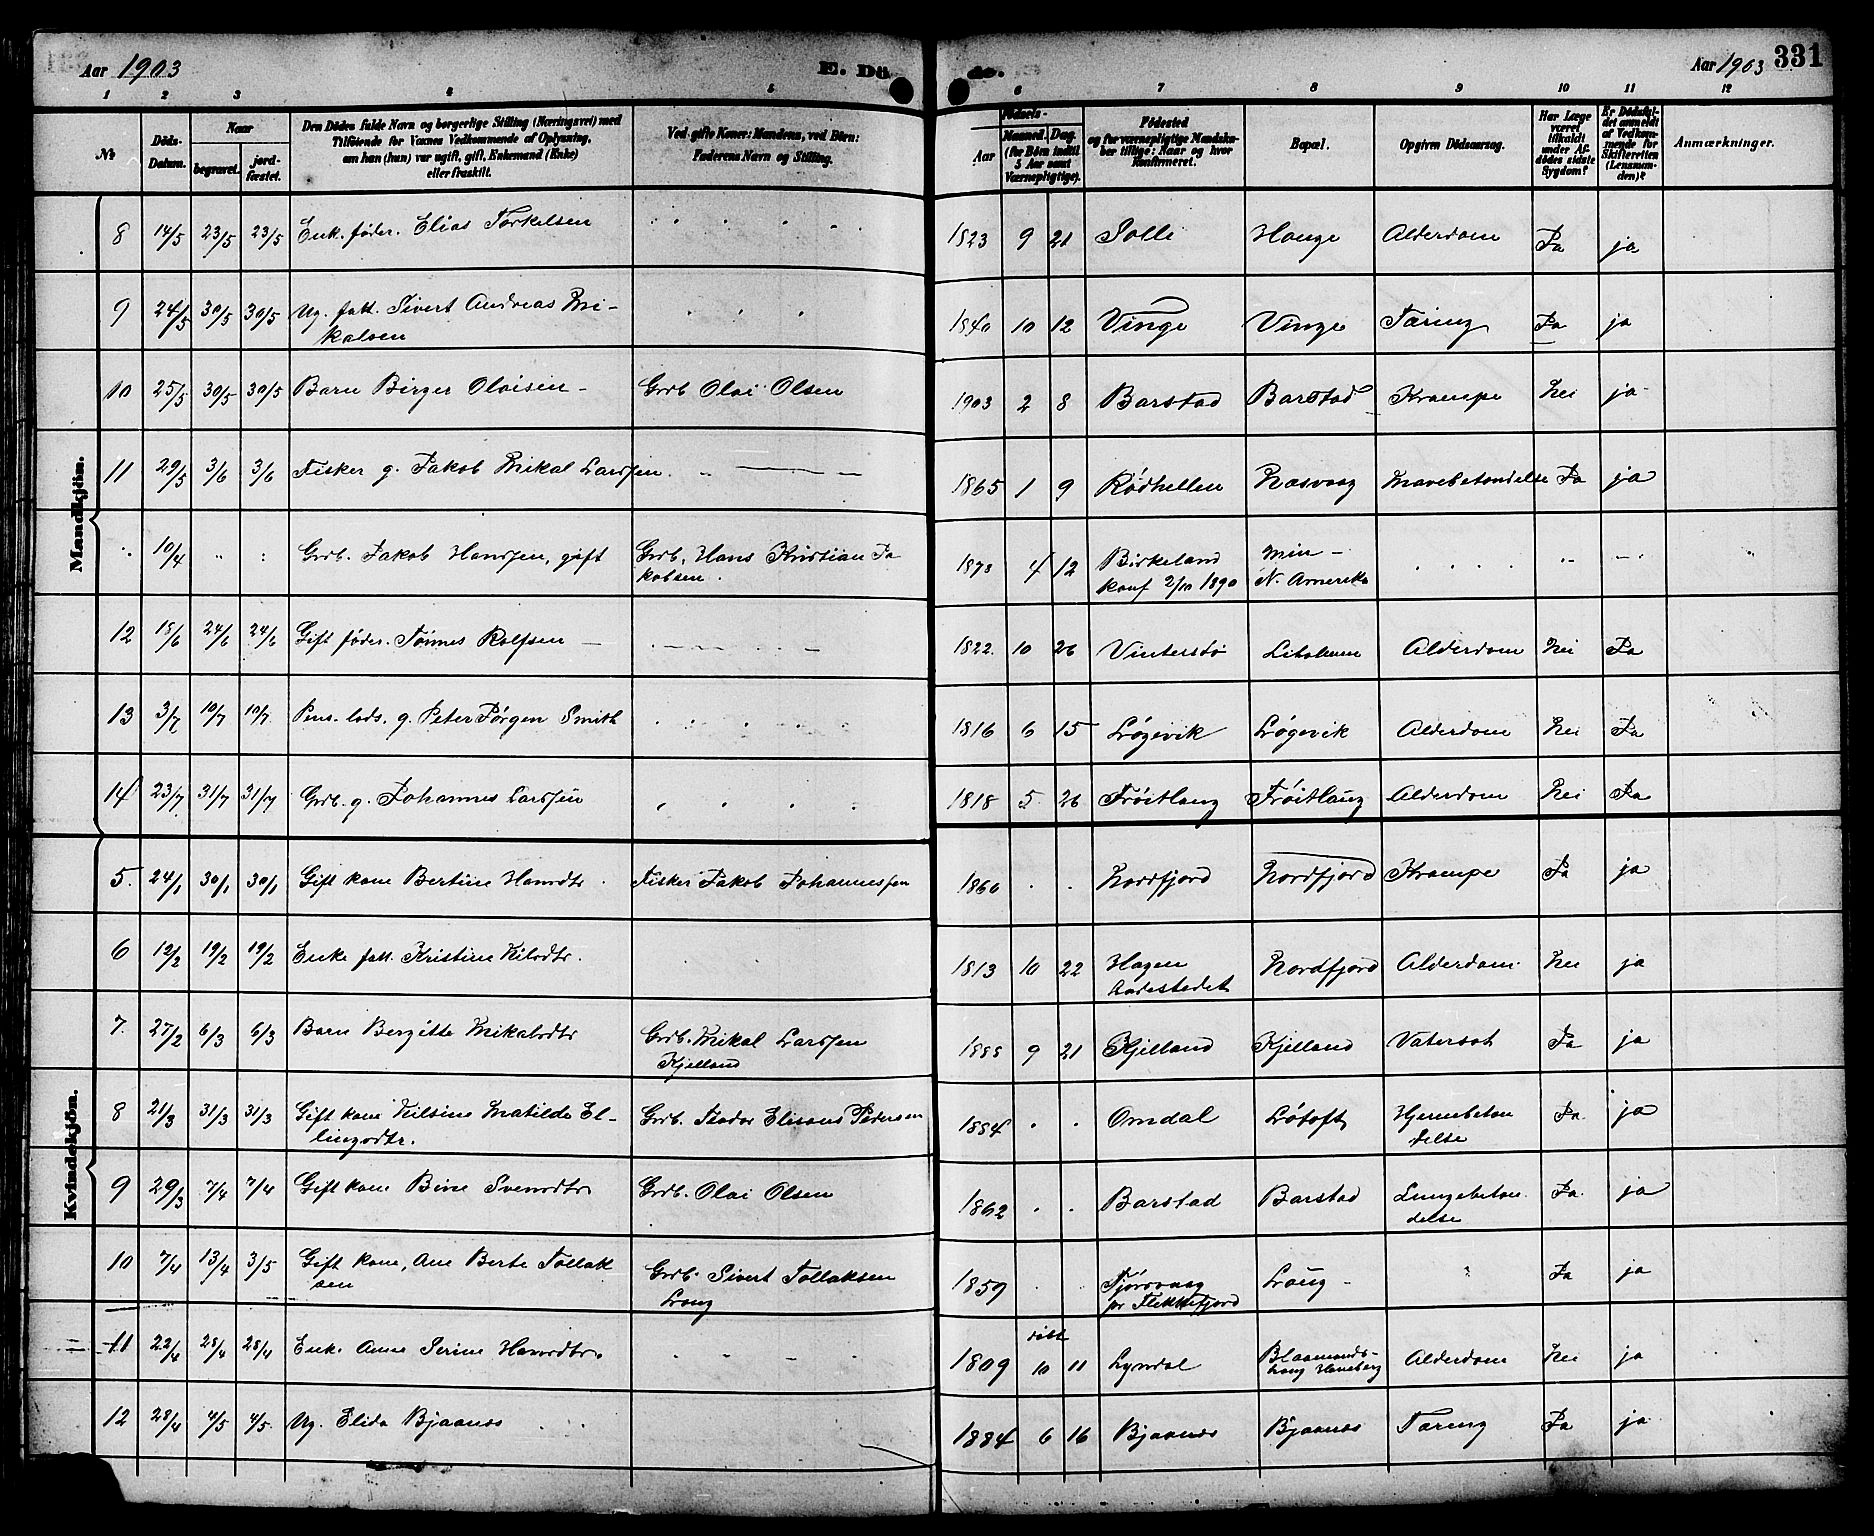 Aar 1903 E. Dö de. Aar 1903 331
1 2 3 4 5 6 7 8 9 10 11 12
No. Döds-Datum. Naar begravet. jordfæstet. Den Dödes fulde Navn og borgerlige Stilling (Næringsvei) med Tilföiende for Voxnes Vedkommende af Oplysning, om han (hun) var ugift, gift, Enkemand (Enke) eller fraskilt. Ved gifte Koner: Mandens, ved Börn: Faderens Navn og Stilling. Födsels- Aar Maaned. Dag. (for Börn indtil 5 Aar samt Værnepligtige). Födested og for værnepligtige Mandskaber tillige: Naar og hvor Konfirmeret. Bopæl. Opgiven Dödsaarsag. Har Læge været tilkaldt under Afdödes sidste Sygdom? Er Dödsfaldet anmeldt af Vedkommende for Skifteretten (Lensmanden)? Anmærkninger.
Mandkjön.
8 14/5 23/5 23/5 Enk. föder. Elias Torkelsen 1823 9 21 Solli Hauge Alderdom Ja ja
9 24/5 30/5 30/5 Ug. fatt. Sivert Andreas Mi-
kalsen 1840 10 12 Vinge Vinge Tæring Ja ja
10 25/5 30/5 30/5 Barn Birger Olaisen - Grdb Olai Olsen 1903 2 8 Barstad Barstad Krampe Nei ja
11 29/5 3/6 3/6 Fisker g. Jakob Mikal Larssen 1865 1 9 Rödhellen Næsvaag Mavebetændelse Ja ja
10/4 Grdb. Jakob Hanssen, gift Grdb. Hans Kristian Ja
kobsen. 1878 4 12 Birkeland
konf 2/10 1890 Min -
N. Amerika
12 18/6 24/6 24/6 Gift föder. Tönnes Rolfsen 1822 10 26 Vinterstø Alderdom Nei Ja
13 3/7 10/7 10/7 Pens. lods. g. Peter Jörgen Smith 1816 6 15 Løgevik Løgevik Alderdom Nei Ja
14 23/7 31/7 31/7 Grdb. g. Johannes Larssen 1818 5 26 Frøitlang Frøitlang Alderdom Nei Ja
Kvindekjön.
5. 24/1 30/1 30/1 Gift kone Bertine Hansdtr. Fisker Jakob Johannessen 1860 Nordfjord Nordfjord Krampe Ja ja
6 12/2 19/2 19/2 Enke fatt. Kristine Nilsdtr. 1813 10 22 Hagen
Nordfjord Alderdom Nei ja
7. 27/2 6/3 6/3 Barn Bergitte Mikalsdtr Grdb. Mikal Larssen
Kjelland 1888 9 21 Kjelland Kjelland Vatersot Ja ja
8 21/3 31/3 31/3 Gift kone Nilsine Matilde El-
lingsdtr. Grdb. Teodor Elisæus Pedersen 1884 Omdal Løtoft Hjernebetæn
delse Ja ja
9 29/3 7/4 7/4 Gift kone Bine Svensdtr Grdb. Olai Olsen 1862 Barstad Barstad Lungebetæn
delse Ja ja
10 7/4 13/4 3/5 Gift kone, Ane Berte Tollak
sen Grdb. Sivert Tollaksen
1859
pr Flekkefjord Ja ja
11 22/4 28/4 28/4 Enke Anne Serine Hansdtr. 1809 döbt 10 11 Lyndal Alderdom Nei ja
12 28/4 4/5 4/5 Ug. Elida Bjaanes 1884 6 16 Bjaanes Bjaanes Tæring Ja ja